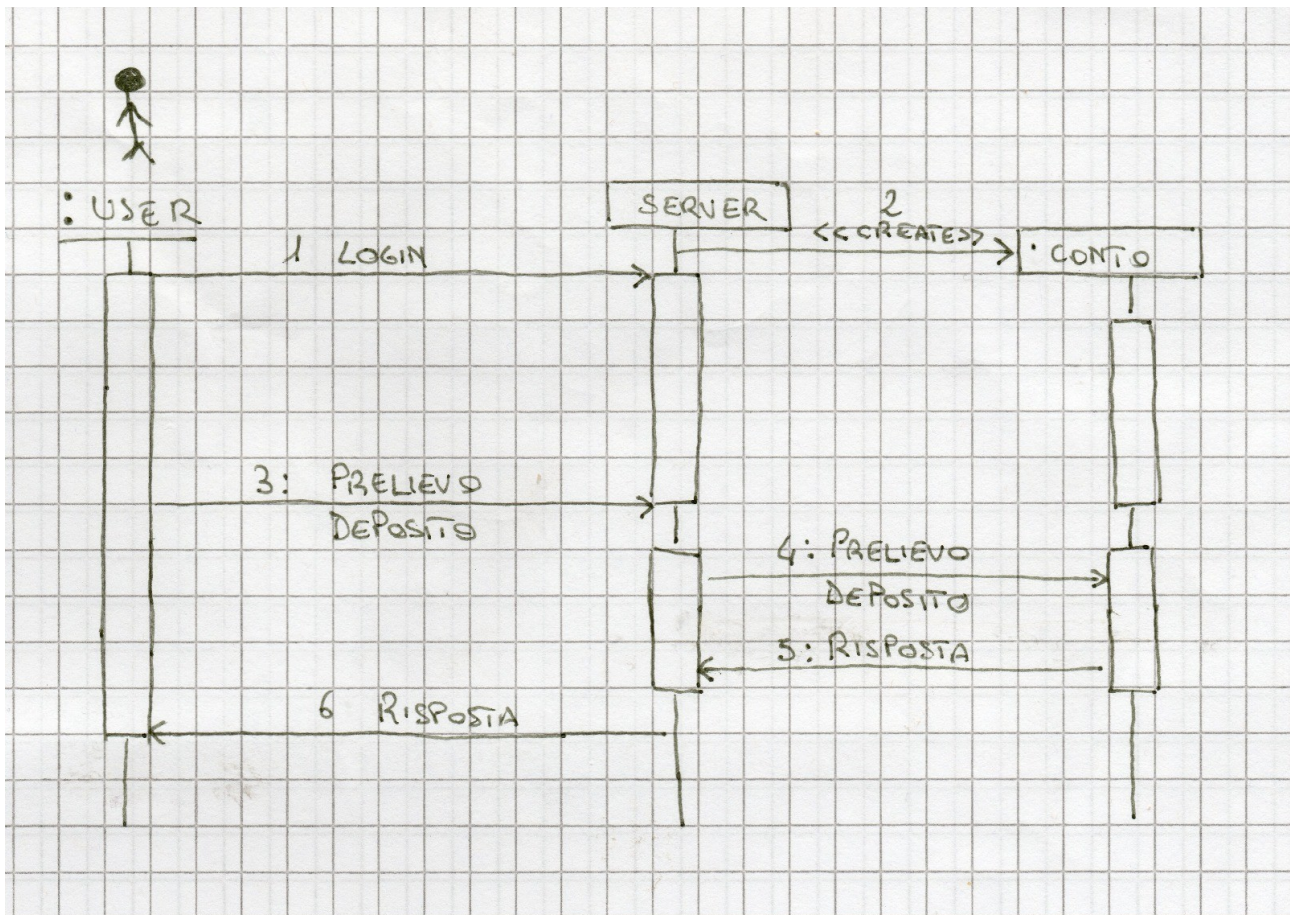 : USER
SERVER
2
<<CREATE>>
: CONTO
1 LOGIN
3: PRELIEVO
DEPOSITO
4: PRELIEVO
DEPOSITO
5: RISPOSTA
6 RISPOSTA